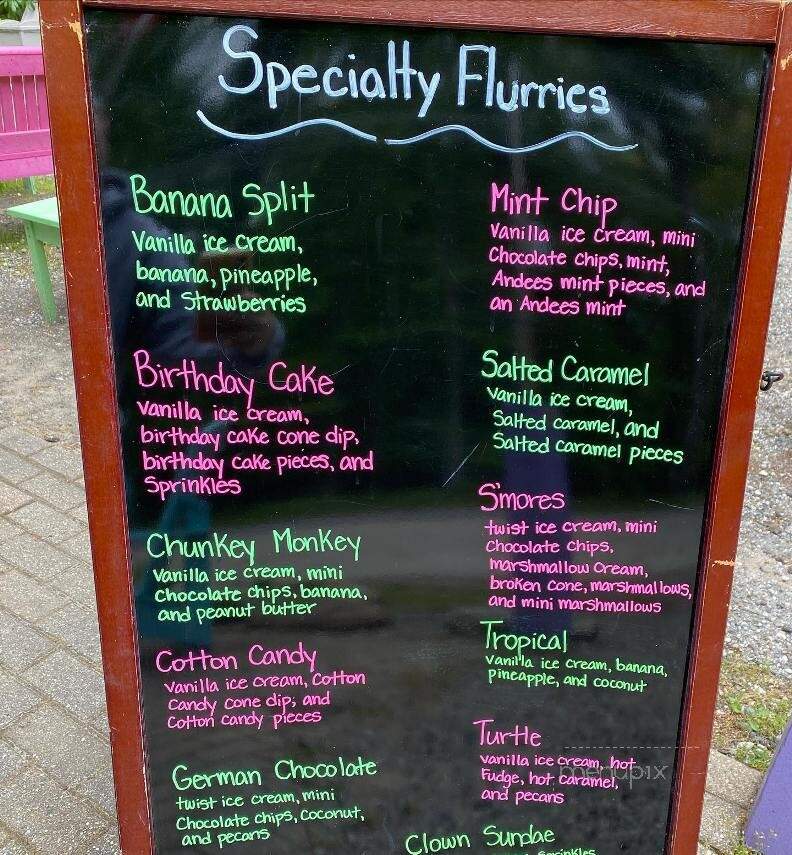 Specialty Flurries
Banana Split
Vanilla ice cream,
banana, pineapple,
and Strawberries
Birthday Cake
Vanilla ice cream,
birthday cake cone dip,
birthday cake pieces, and
Sprinkles
Chunkey Monkey
Vanilla ice cream, mini
chocolate chips, banana,
and peanut butter
Cotton Candy
Vanilla ice cream, Cotton
Candy cone dip, and
Cotton candy pieces
German Chocolate
twist ice cream, mini
Chocolate chips, coconut,
and pecans
Mint Chip
Vanilla ice cream, mini
Chocolate chips, mint,
Andees mint pieces, and
an Andees mint
Salted Caramel
Vanilla ice cream,
Salted caramel, and
Salted caramel pieces
S'mores
twist ice cream, mini
Chocolate chips,
marshmallow cream,
broken cone, marshmallows,
and mini marshmallows
Tropical
Vanilla ice cream, banana,
pineapple, and coconut
Turtle
Vanilla ice cream, hot
Fudge, hot caramel,
and pecans
menupix
Clown Sundae
Sprinkles